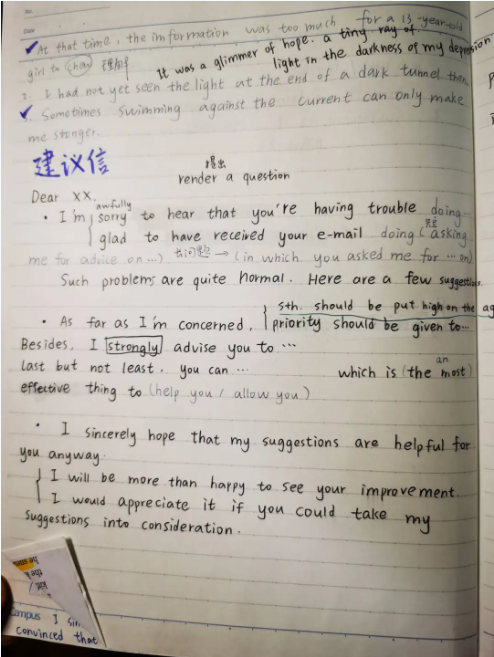 No.
Date
✓At that time, the imformation was too much for a 13-year-old
girl to chew 理解
It was a glimmer of hope. a tiny ray of
light in the darkness of my depression
I had not yet seen the light at the end of a dark tunnel then.
✓ Sometimes swimming against the current can only make
me stonger.
建议信
提出
render a question
Dear XX.
awfully
• I'm sorry to hear that you're having trouble doing
glad to have received your e-mail doing (asking
me for advice on …) 出问题 → (in which you asked me for … on)
Such problems are quite normal. Here are a few suggestions
sth. should be put high on the ag
• As far as I'm concerned, priority should be given to …
Besides, I strongly advise you to …
last but not least. you can … which is (the most)
an
effective thing to (help you / allow you)
• I sincerely hope that my suggestions are helpful for
you anyway.
I will be more than happy to see your improvement.
I would appreciate it if you could take my
suggestions into consideration.
campus I sin
convinced that